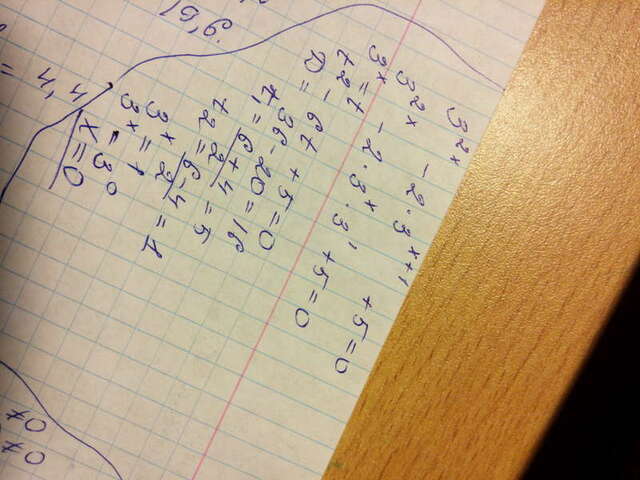 3^2x - 2·3^x+1 + 5=0
3^2x - 2·3^x·3^1 + 5=0
3^x = t
t^2 - 6t + 5=0
D = 36-20=16
t_1 = (6+4)/2 = 5
t_2 = (6-4)/2 = 1
3^x = 1
3^x = 3^0
x=0